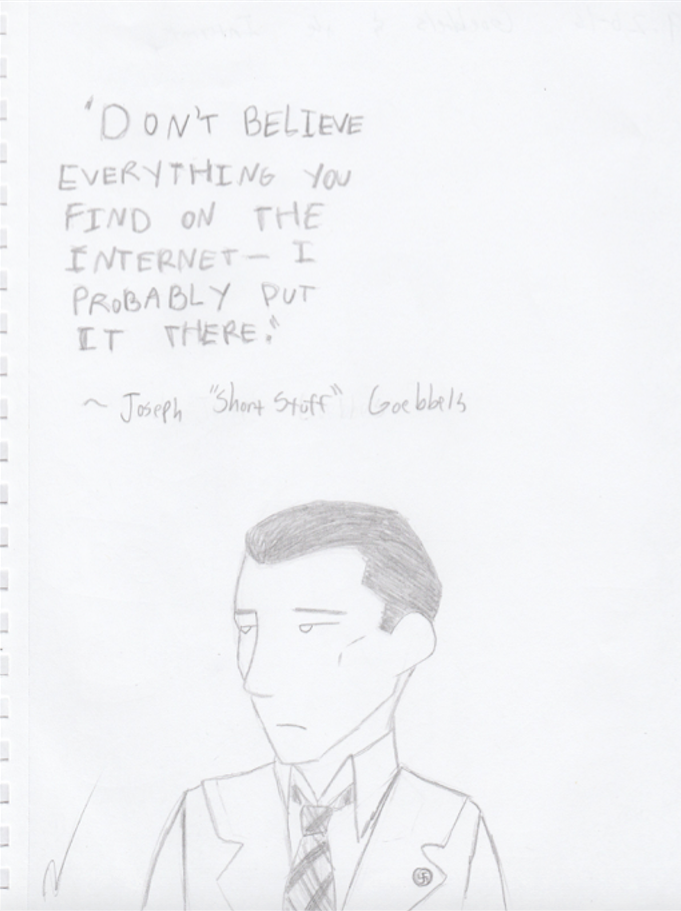 "DON'T BELIEVE
EVERYTHING YOU
FIND ON THE
INTERNET— I
PROBABLY PUT
IT THERE."
~ Joseph "Short Stuff" Goebbels